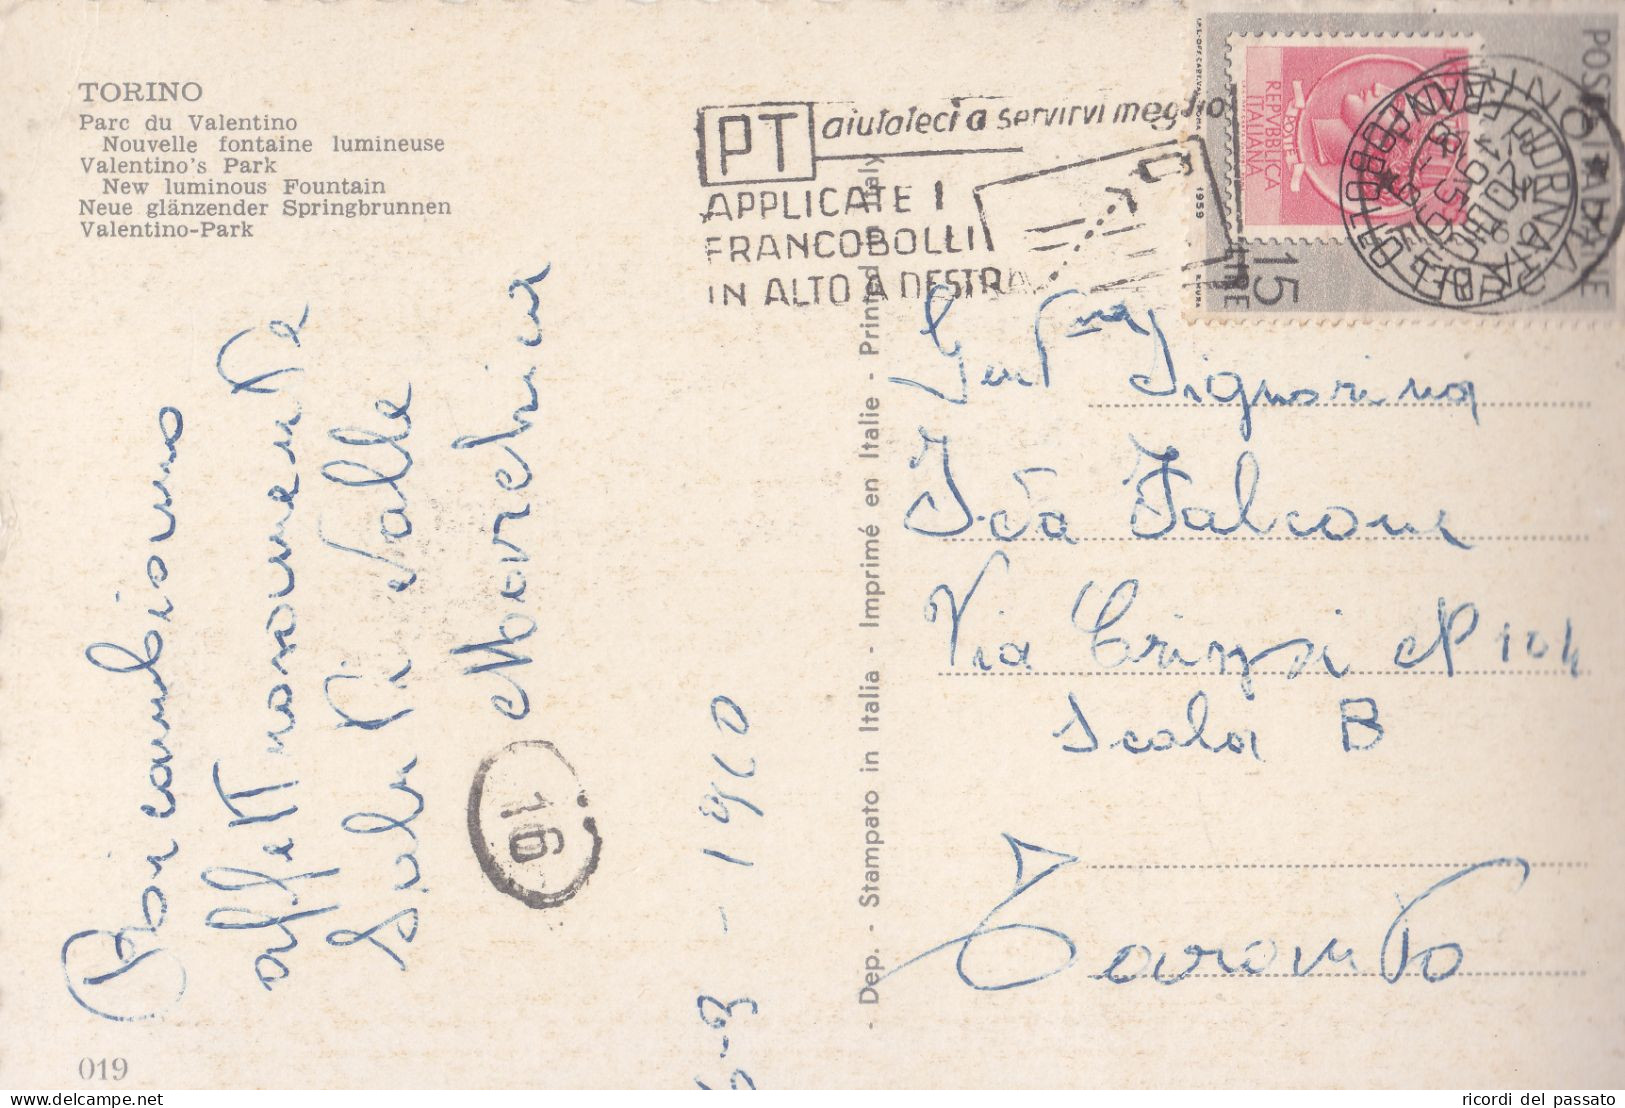 TORINO
Parc du Valentino
Nouvelle fontaine lumineuse
Valentino's Park
New luminous Fountain
Neue glänzender Springbrunnen
Valentino-Park
PT aiutateci a servirvi meglio
APPLICATE I
FRANCOBOLLI
IN ALTO A DESTRA
POSTE ITALIANE
REPVBBLICA
ITALIANA
POSTE
LIRE 15
1959
GIORNATA
DEL
FRANCOBOLLO
Ricambiamo
affettuosamente
Saluti dalle
16
6-3-1960
- Dep. - Stampato in Italia - Imprimé en Italie - Printed in Italy
Signorina
Ida Falcone
Via Crispi N 104
Scala B
Taranto
019
ricordi del passato